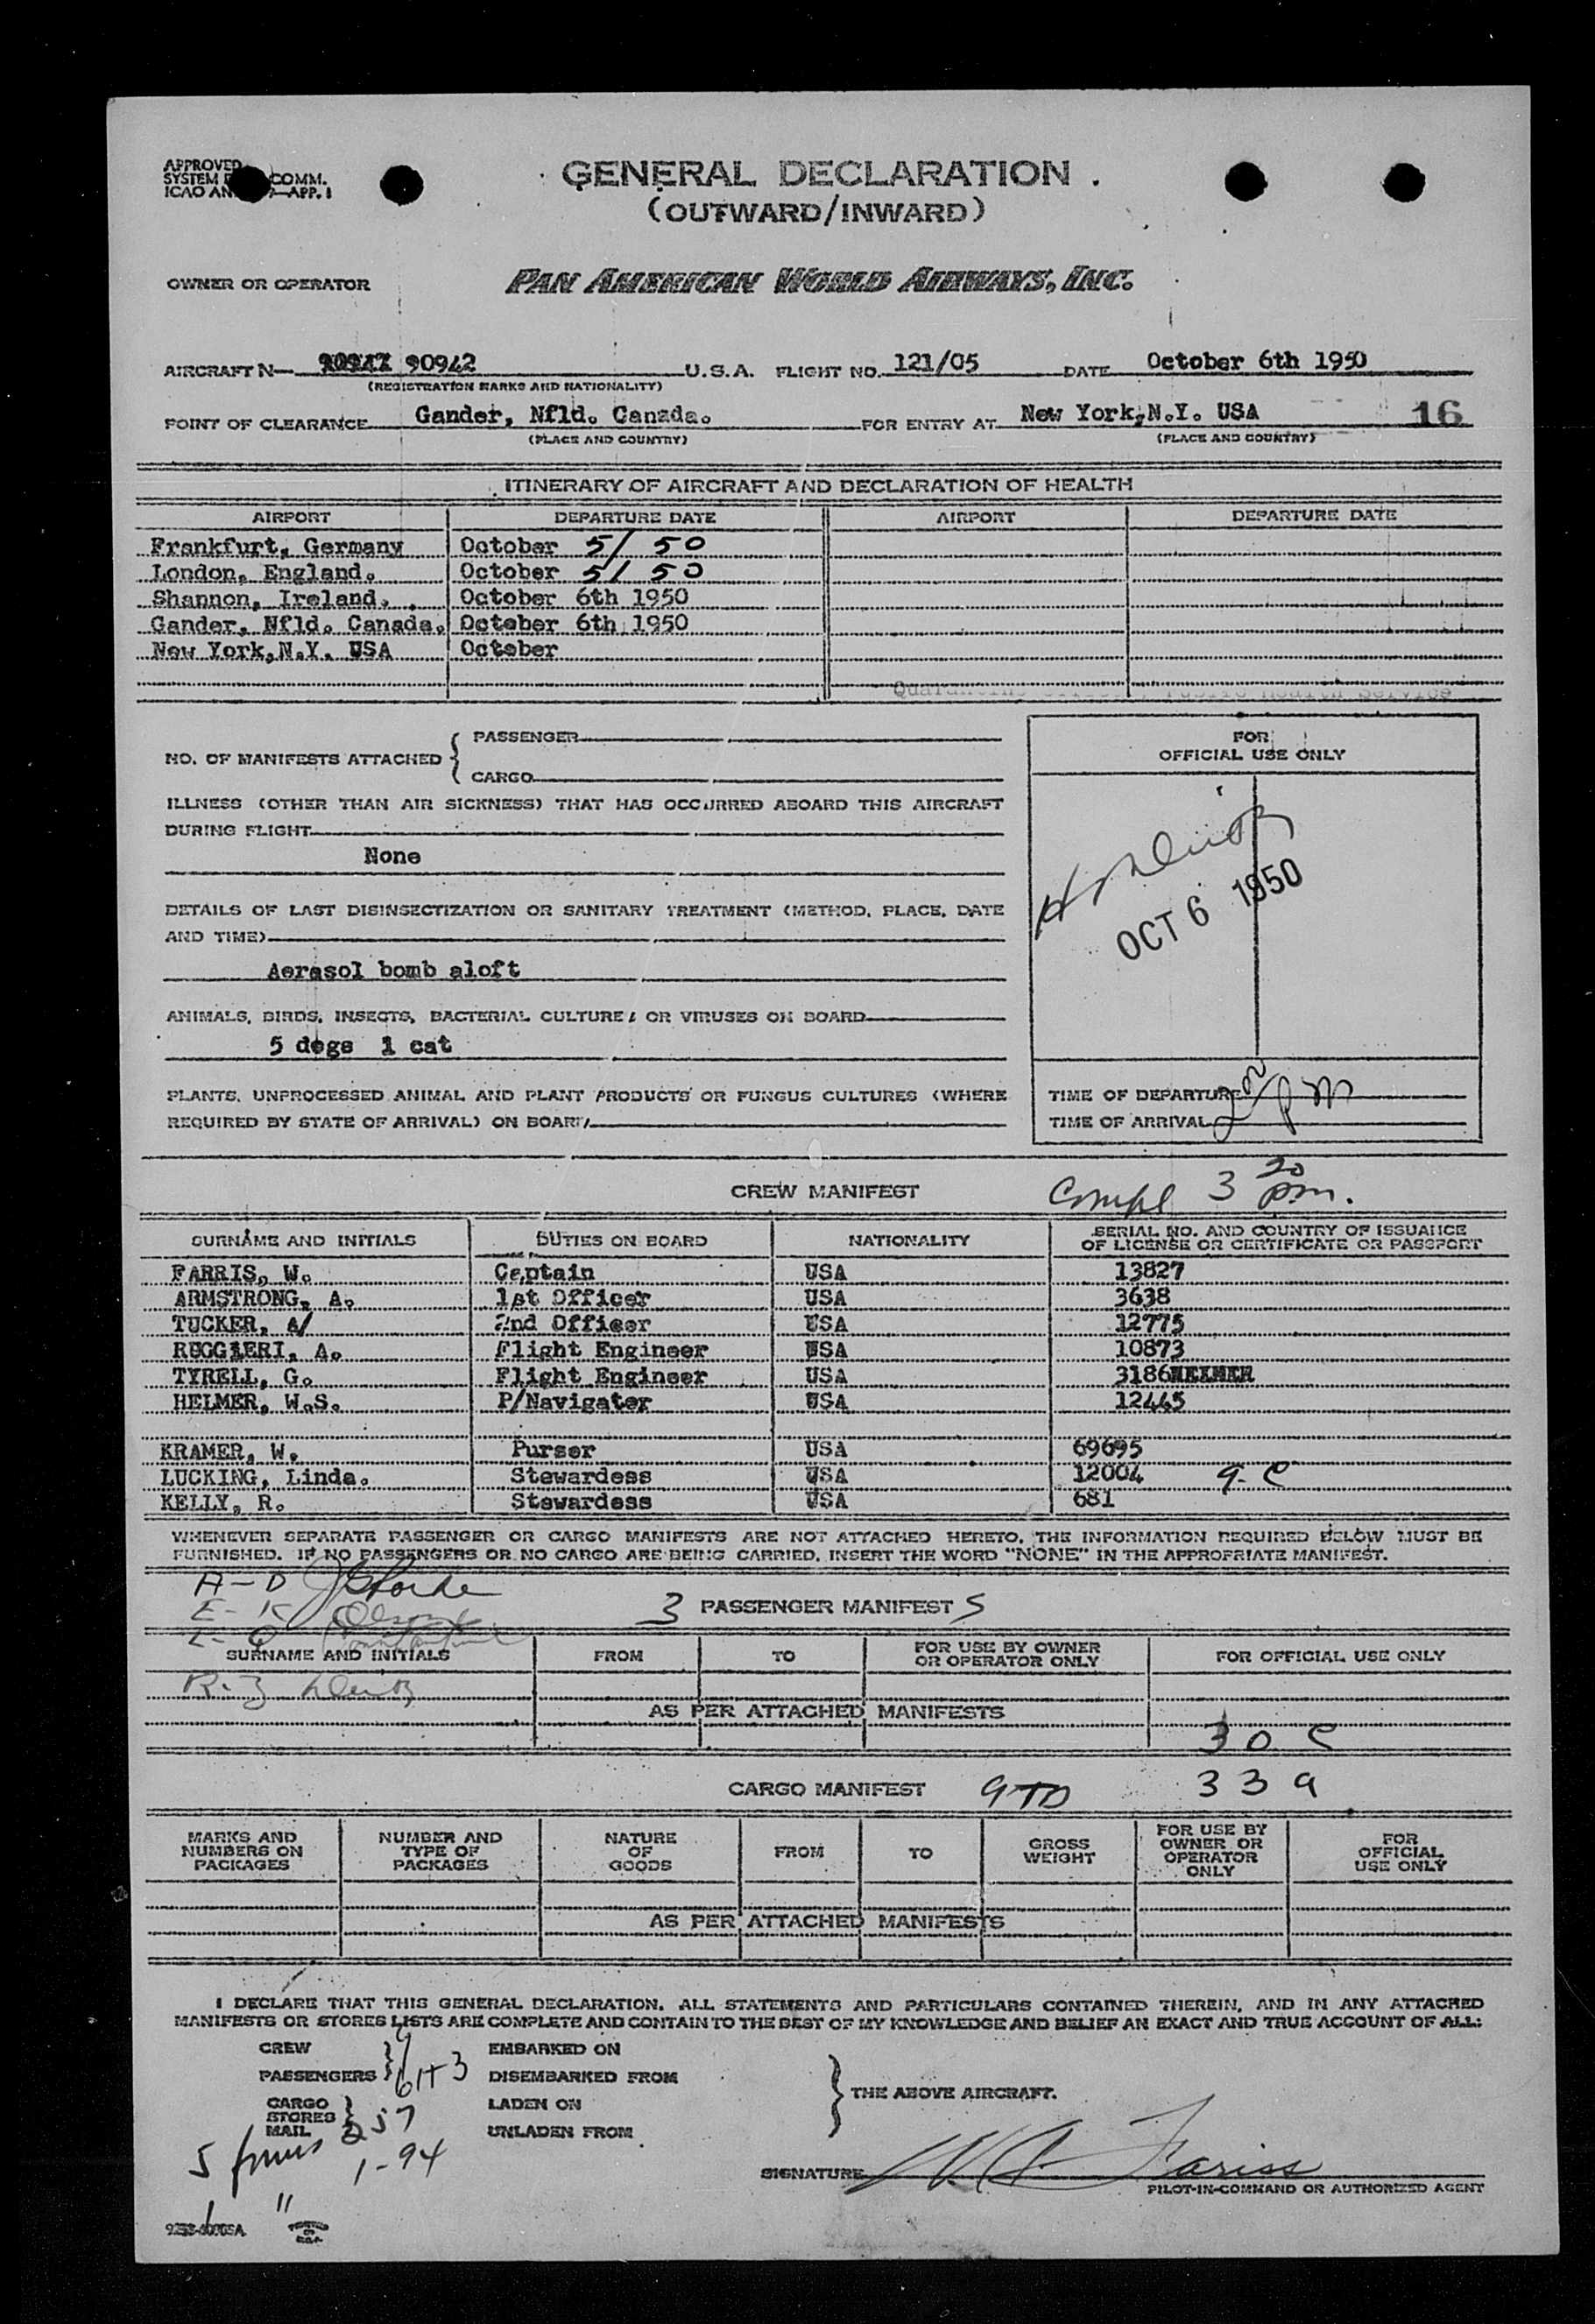 APPROVED
SYSTEM COMM.
ICAO AN APP. 1
GENERAL DECLARATION
(OUTWARD/INWARD)
OWNER OR OPERATOR PAN AMERICAN WORLD AIRWAYS, INC.
AIRCRAFT N— 90942 U.S.A. FLIGHT NO. 121/05 DATE October 6th 1950
(REGISTRATION MARKS AND NATIONALITY)
POINT OF CLEARANCE Gander, Nfld. Canada. FOR ENTRY AT New York,N.Y. USA 16
(PLACE AND COUNTRY) (PLACE AND COUNTRY)
ITINERARY OF AIRCRAFT AND DECLARATION OF HEALTH
AIRPORT DEPARTURE DATE AIRPORT DEPARTURE DATE
Frankfurt, Germany October 5/ 50
London, England. October 5/ 50
Shannon, Ireland. October 6th 1950
Gander, Nfld. Canada. October 6th 1950
New York,N.Y. USA October
Public Health Service
NO. OF MANIFESTS ATTACHED { PASSENGER
CARGO
FOR
OFFICIAL USE ONLY
ILLNESS (OTHER THAN AIR SICKNESS) THAT HAS OCCURRED ABOARD THIS AIRCRAFT
DURING FLIGHT
None
DETAILS OF LAST DISINSECTIZATION OR SANITARY TREATMENT (METHOD, PLACE, DATE
AND TIME)
OCT 6 1950
Aerasol bomb aloft
ANIMALS, BIRDS, INSECTS, BACTERIAL CULTURES OR VIRUSES ON BOARD
5 dogs 1 cat
PLANTS, UNPROCESSED ANIMAL AND PLANT PRODUCTS OR FUNGUS CULTURES (WHERE
REQUIRED BY STATE OF ARRIVAL) ON BOARD
TIME OF DEPARTURE
TIME OF ARRIVAL pm
CREW MANIFEST Compl 3 20 pm.
SURNAME AND INITIALS DUTIES ON BOARD NATIONALITY SERIAL NO. AND COUNTRY OF ISSUANCE
OF LICENSE OR CERTIFICATE OR PASSPORT
FARRIS, W. Captain USA 13827
ARMSTRONG, A. 1st Officer USA 3638
TUCKER, A/ 2nd Officer USA 12775
RUGGIERI, A. Flight Engineer USA 10873
TYRELL, G. Flight Engineer USA 3186
HELMER, W.S. P/Navigator USA 12445
KRAMER, W. Purser USA 69695
LUCKING, Linda. Stewardess USA 12004 9-C
KELLY, R. Stewardess USA 681
WHENEVER SEPARATE PASSENGER OR CARGO MANIFESTS ARE NOT ATTACHED HERETO, THE INFORMATION REQUIRED BELOW MUST BE
FURNISHED. IF NO PASSENGERS OR NO CARGO ARE BEING CARRIED, INSERT THE WORD "NONE" IN THE APPROPRIATE MANIFEST.
A-D
E-K
3 PASSENGER MANIFEST S
L-Q
SURNAME AND INITIALS FROM TO FOR USE BY OWNER
OR OPERATOR ONLY FOR OFFICIAL USE ONLY
R-Z
AS PER ATTACHED MANIFESTS
30 C
CARGO MANIFEST 33 a
MARKS AND
NUMBERS ON
PACKAGES
NUMBER AND
TYPE OF
PACKAGES
NATURE
OF
GOODS
FROM
TO
GROSS
WEIGHT
FOR USE BY
OWNER OR
OPERATOR
ONLY
FOR
OFFICIAL
USE ONLY
AS PER ATTACHED MANIFESTS
I DECLARE THAT THIS GENERAL DECLARATION, ALL STATEMENTS AND PARTICULARS CONTAINED THEREIN, AND IN ANY ATTACHED
MANIFESTS OR STORES LISTS ARE COMPLETE AND CONTAIN TO THE BEST OF MY KNOWLEDGE AND BELIEF AN EXACT AND TRUE ACCOUNT OF ALL:
CREW 9 EMBARKED ON
PASSENGERS 61+3 DISEMBARKED FROM
THE ABOVE AIRCRAFT.
CARGO LADEN ON
STORES
MAIL UNLADEN FROM
5 forms 1-94
SIGNATURE W. Fariss
PILOT-IN-COMMAND OR AUTHORIZED AGENT
1 "